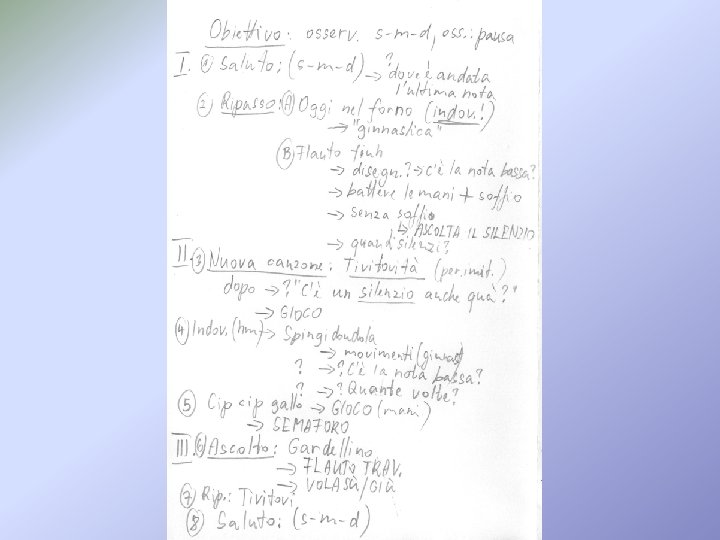 Obiettivo: osserv. s-m-d, oss.: pausa
I. ① Saluto: (s-m-d) → ? dove è andata
l'ultima nota
② Ripasso: Ⓐ Oggi nel forno (indov.!)
→ "ginnastica"
Ⓑ Flauto fiuh
→ disegn.? → c'è la nota bassa?
→ battere le mani + soffio
→ senza soffio
↳ ASCOLTA IL SILENZIO
→ quanti silenzi?
II. ③ Nuova canzone: Tivitovità (per imit.)
dopo → ? "C'è un silenzio anche quà?"
→ GIOCO
④ Indov. (hm) → Spingi dondola
→ movimenti (ginnas)
? → ? C'è la nota bassa?
? → ? Quante volte?
⑤ Cip cip gallo → GIOCO (mani)
→ SEMAFORO
III. ⑥ Ascolto: Gardellino
→ FLAUTO TRAV.
→ VOLA SÙ/GIÙ
⑦ Rip.: Tivitovi
⑧ Saluto: (s-m-d)